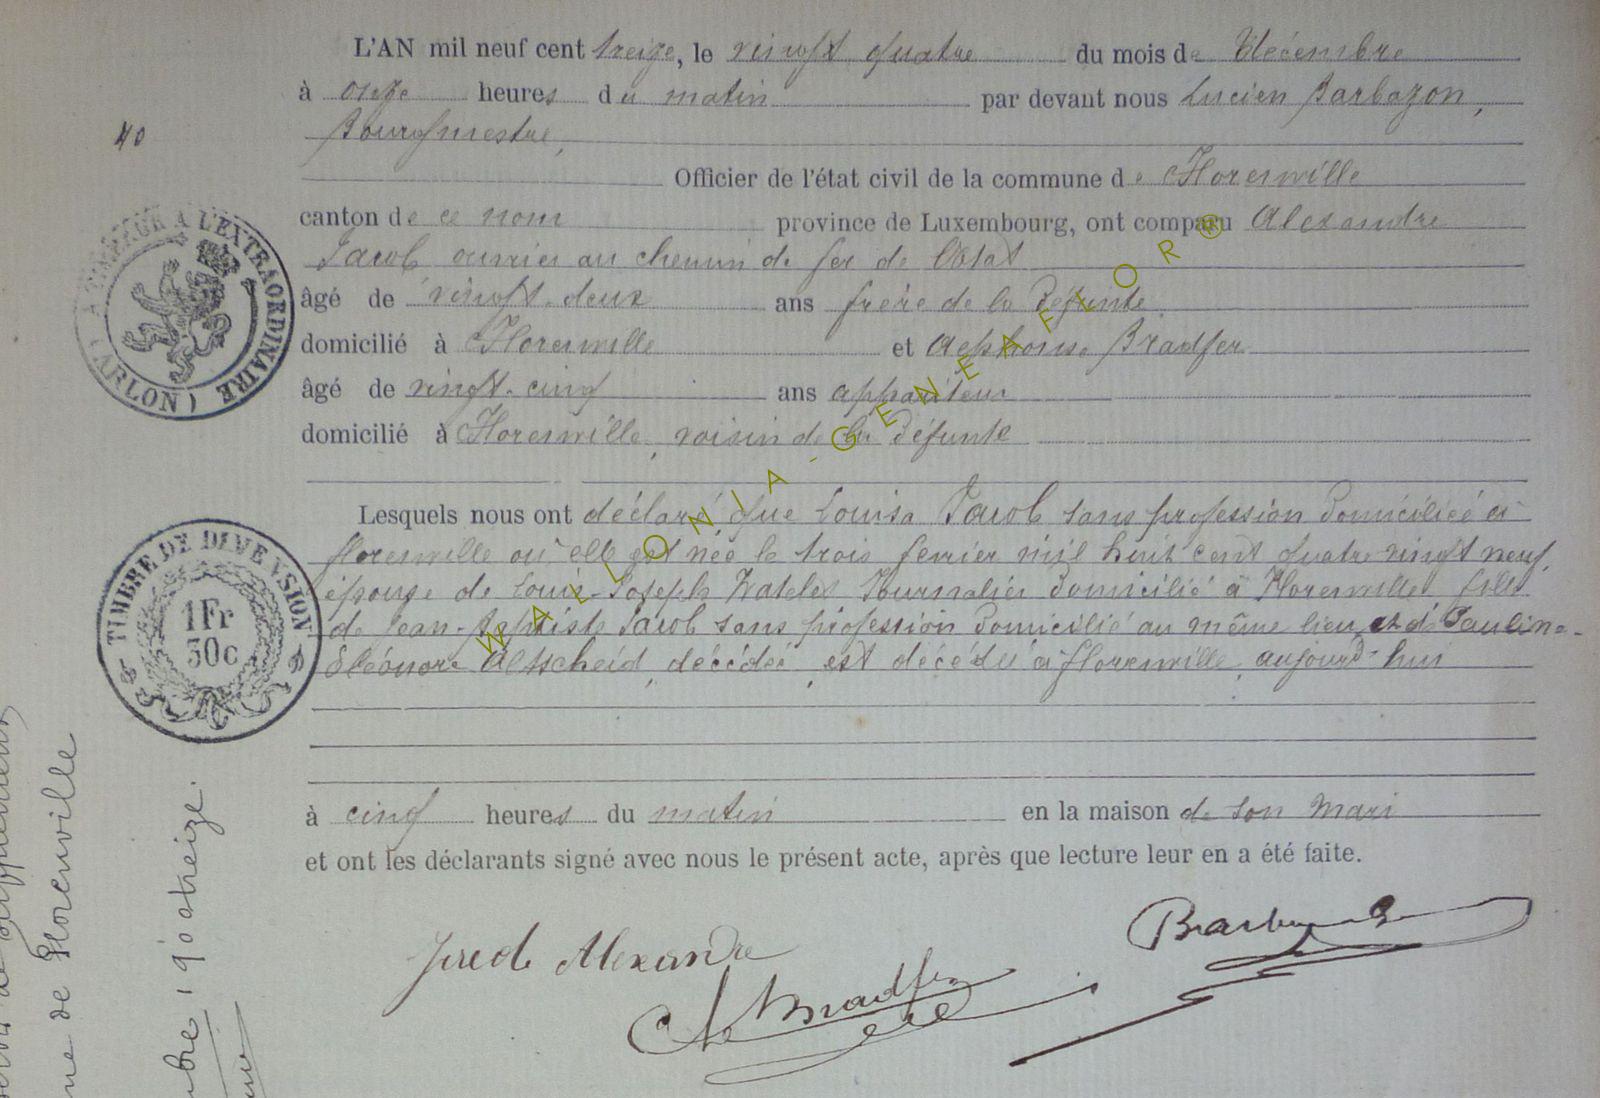 L'AN mil neuf cent treize, le vingt quatre du mois de Décembre
à onze heures du matin par devant nous Lucien Barbazon,
Bourgmestre,
40
Officier de l'état civil de la commune de Florenville
canton de ce nom province de Luxembourg, ont comparu Alexandre
Jacob ouvrier au chemin de fer de l'état
âgé de vingt-deux ans frère de la défunte
domicilié à Florenville et Alphonse Bradfer
âgé de vingt-cinq ans appariteur
domicilié à Florenville, voisin de la défunte
Lesquels nous ont déclaré que Louisa Jacob sans profession domiciliée à
florenville où elle est née le trois fevrier mil huit cent quatre vingt neuf,
épouse de Louis-Joseph Watelet Journalier domicilié à Florenville fille
de Jean-Baptiste Jacob sans profession domicilié au même lieu, et de Pauline-
Eléonore Altscheid, décédée, est décédée à florenville, aujourd'hui
à cinq heures du matin en la maison de son mari
et ont les déclarants signé avec nous le présent acte, après que lecture leur en a été faite.
Alexandre
Bradfer
TIMBREUR A L'EXTRAORDINAIRE (ARLON)
TIMBRE DE DIMENSION
1Fr
50c
WALLONIA-GENEAFLOR®
de Florenville
1900treize.